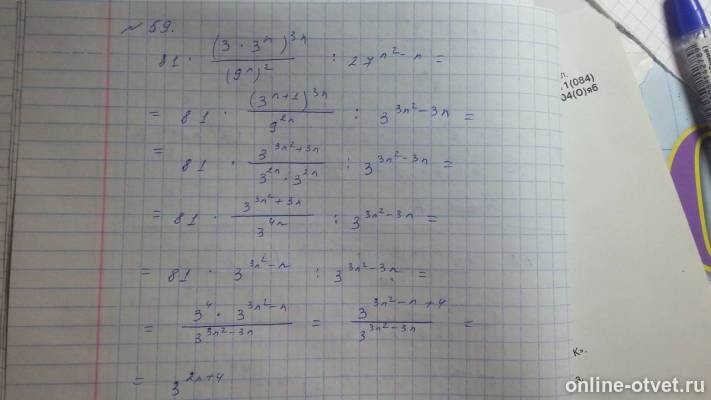 № 59.
81 · (3 · 3ⁿ)³ⁿ / (9ⁿ)² : 27ⁿ²⁻ⁿ =
= 81 · (3ⁿ⁺¹)³ⁿ / 9²ⁿ : 3³ⁿ²⁻³ⁿ =
= 81 · 3³ⁿ²⁺³ⁿ / 3²ⁿ · 3²ⁿ : 3³ⁿ²⁻³ⁿ =
= 81 · 3³ⁿ²⁺³ⁿ / 3⁴ⁿ : 3³ⁿ²⁻³ⁿ =
= 81 · 3³ⁿ²⁻ⁿ : 3³ⁿ²⁻³ⁿ =
= 3⁴ · 3³ⁿ²⁻ⁿ / 3³ⁿ²⁻³ⁿ = 3³ⁿ²⁻ⁿ⁺⁴ / 3³ⁿ²⁻³ⁿ =
= 3²ⁿ⁺⁴
л.
1(084)
04(0)яб
К».
online-otvet.ru